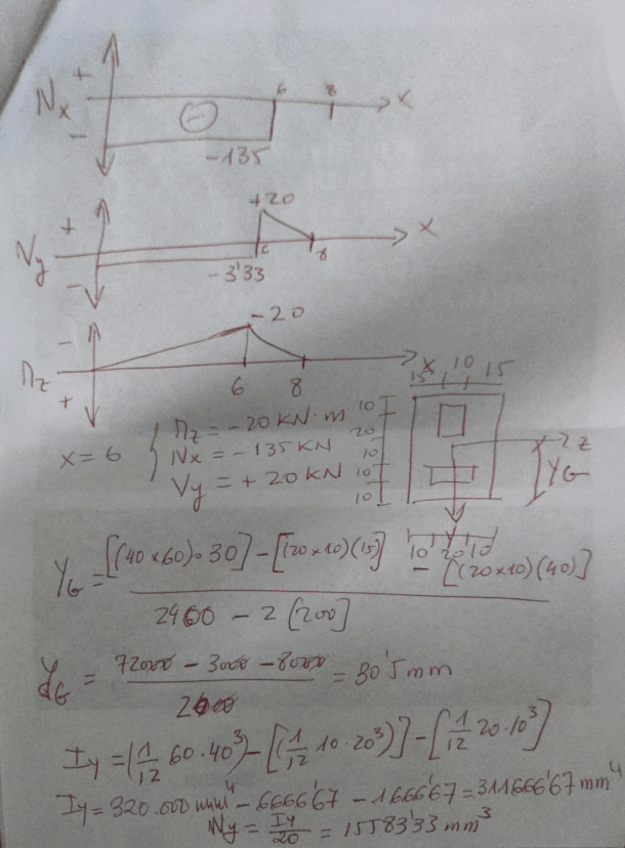 +
Nx
6 8 x
−
⊖
−135
+20
+
Vy
x
6 8
−
−3'33
−20
−
Mz
x
6 8
+
15 10 15
x = 6 { Mz = −20 KN·m
Nx = −135 KN
Vy = +20 KN
10
20
10
10
10
z
YG
y
10 20 10
YG = [(40×60)·30] − [(20×10)(15)] − [(20×10)(40)]
2400 − 2[200]
YG = 72000 − 3000 − 8000 = 30'5 mm
2000
Iy = (1/12 60·40³) − [(1/12 10·20³)] − [1/12 20·10³]
Iy = 320.000 mm⁴ − 6666'67 − 1666'67 = 311666'67 mm⁴
Wy = Iy/20 = 15583'33 mm³